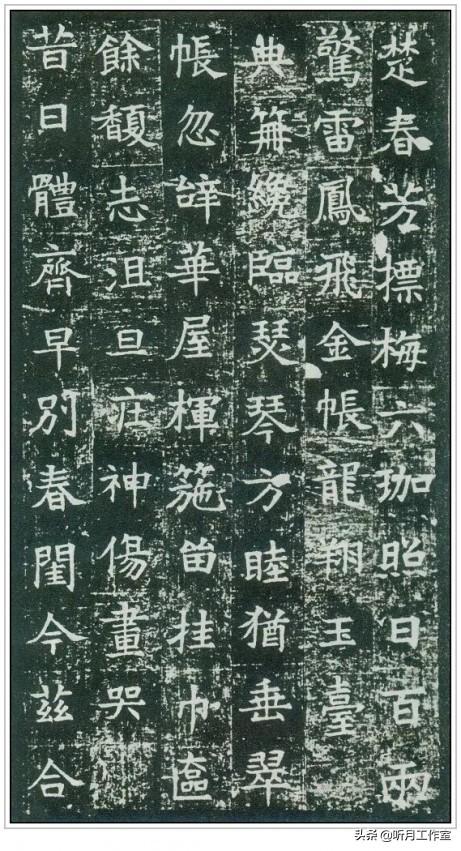 楚春芳摽梅六珈照日百兩
驚雷鳳飛金帳龍翔玉臺
典冊纔臨瑟琴方睦猶垂翠
帳忽辤華屋楎箷留挂巾匳
餘馥志沮旦庄神傷晝哭
昔日體齊早別春閨今茲合
头条 @听月工作室